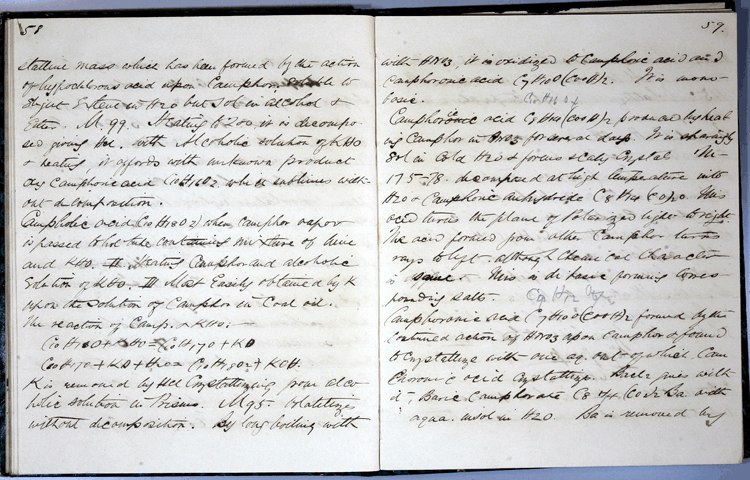 58
stalline mass which has been formed by the action
of hypochlorous acid upon Camphor, soluble to
Extent in H2O but Sol in alcohol &
Ether. M. 99. Heating to 200, it is decompo-
sed giving HCl. with Alcoholic solution of KHO
& heating, it affords with unknown product
oxy Camphoric acid C10H16O2 which sublimes with-
out decomposition.
Campholic acid (C10H18O2) when camphor vapor
is passed to hot tube containing mixture of lime
and KHO. Heating Camphor and alcoholic
Solution of KHO. Most Easily obtained by K
upon the solution of Camphor in Coal oil.
The reaction of Camp. & KHO:—
C10H16O + KHO = C10H17O + KO
C10H17O + KO + H2O = C10H18O2 + KOH.
K is removed by HCl Crystallizing from alco-
holic solution in Prisms. M 95. Volatilizes
without decomposition. By long boiling with
59.
with HNO3, it is oxidized to Camphoric acid and
Camphoronic acid C7H10O(COOH)2. It is mono-
basic.
Camphoric acid C8H14(COOH)2 produced by heat-
ing Camphor in HNO3 for several days. It is sparingly
Sol in Cold H2O & forms scaly Crystal. M-
175-78. decomposed at high temperature into
H2O & Camphoric Anhydride C8H14(CO)2O. This
acid turns the plane of Polarized light to right
The acid formed from other Camphor turns
rays to left. although Chemical Character
is same. This is di basic forming corres-
ponding salts.
Camphoronic Acid C7H10O(COOH)2 formed by the
Continued action of HNO3 upon Camphor & found
to Crystallize with one aq. out of which Cam
Choronic acid Crystallize. BaCl2 gives with
it, Baric Camphorate Ba. with
aqua. insol in H2O. Ba is removed by